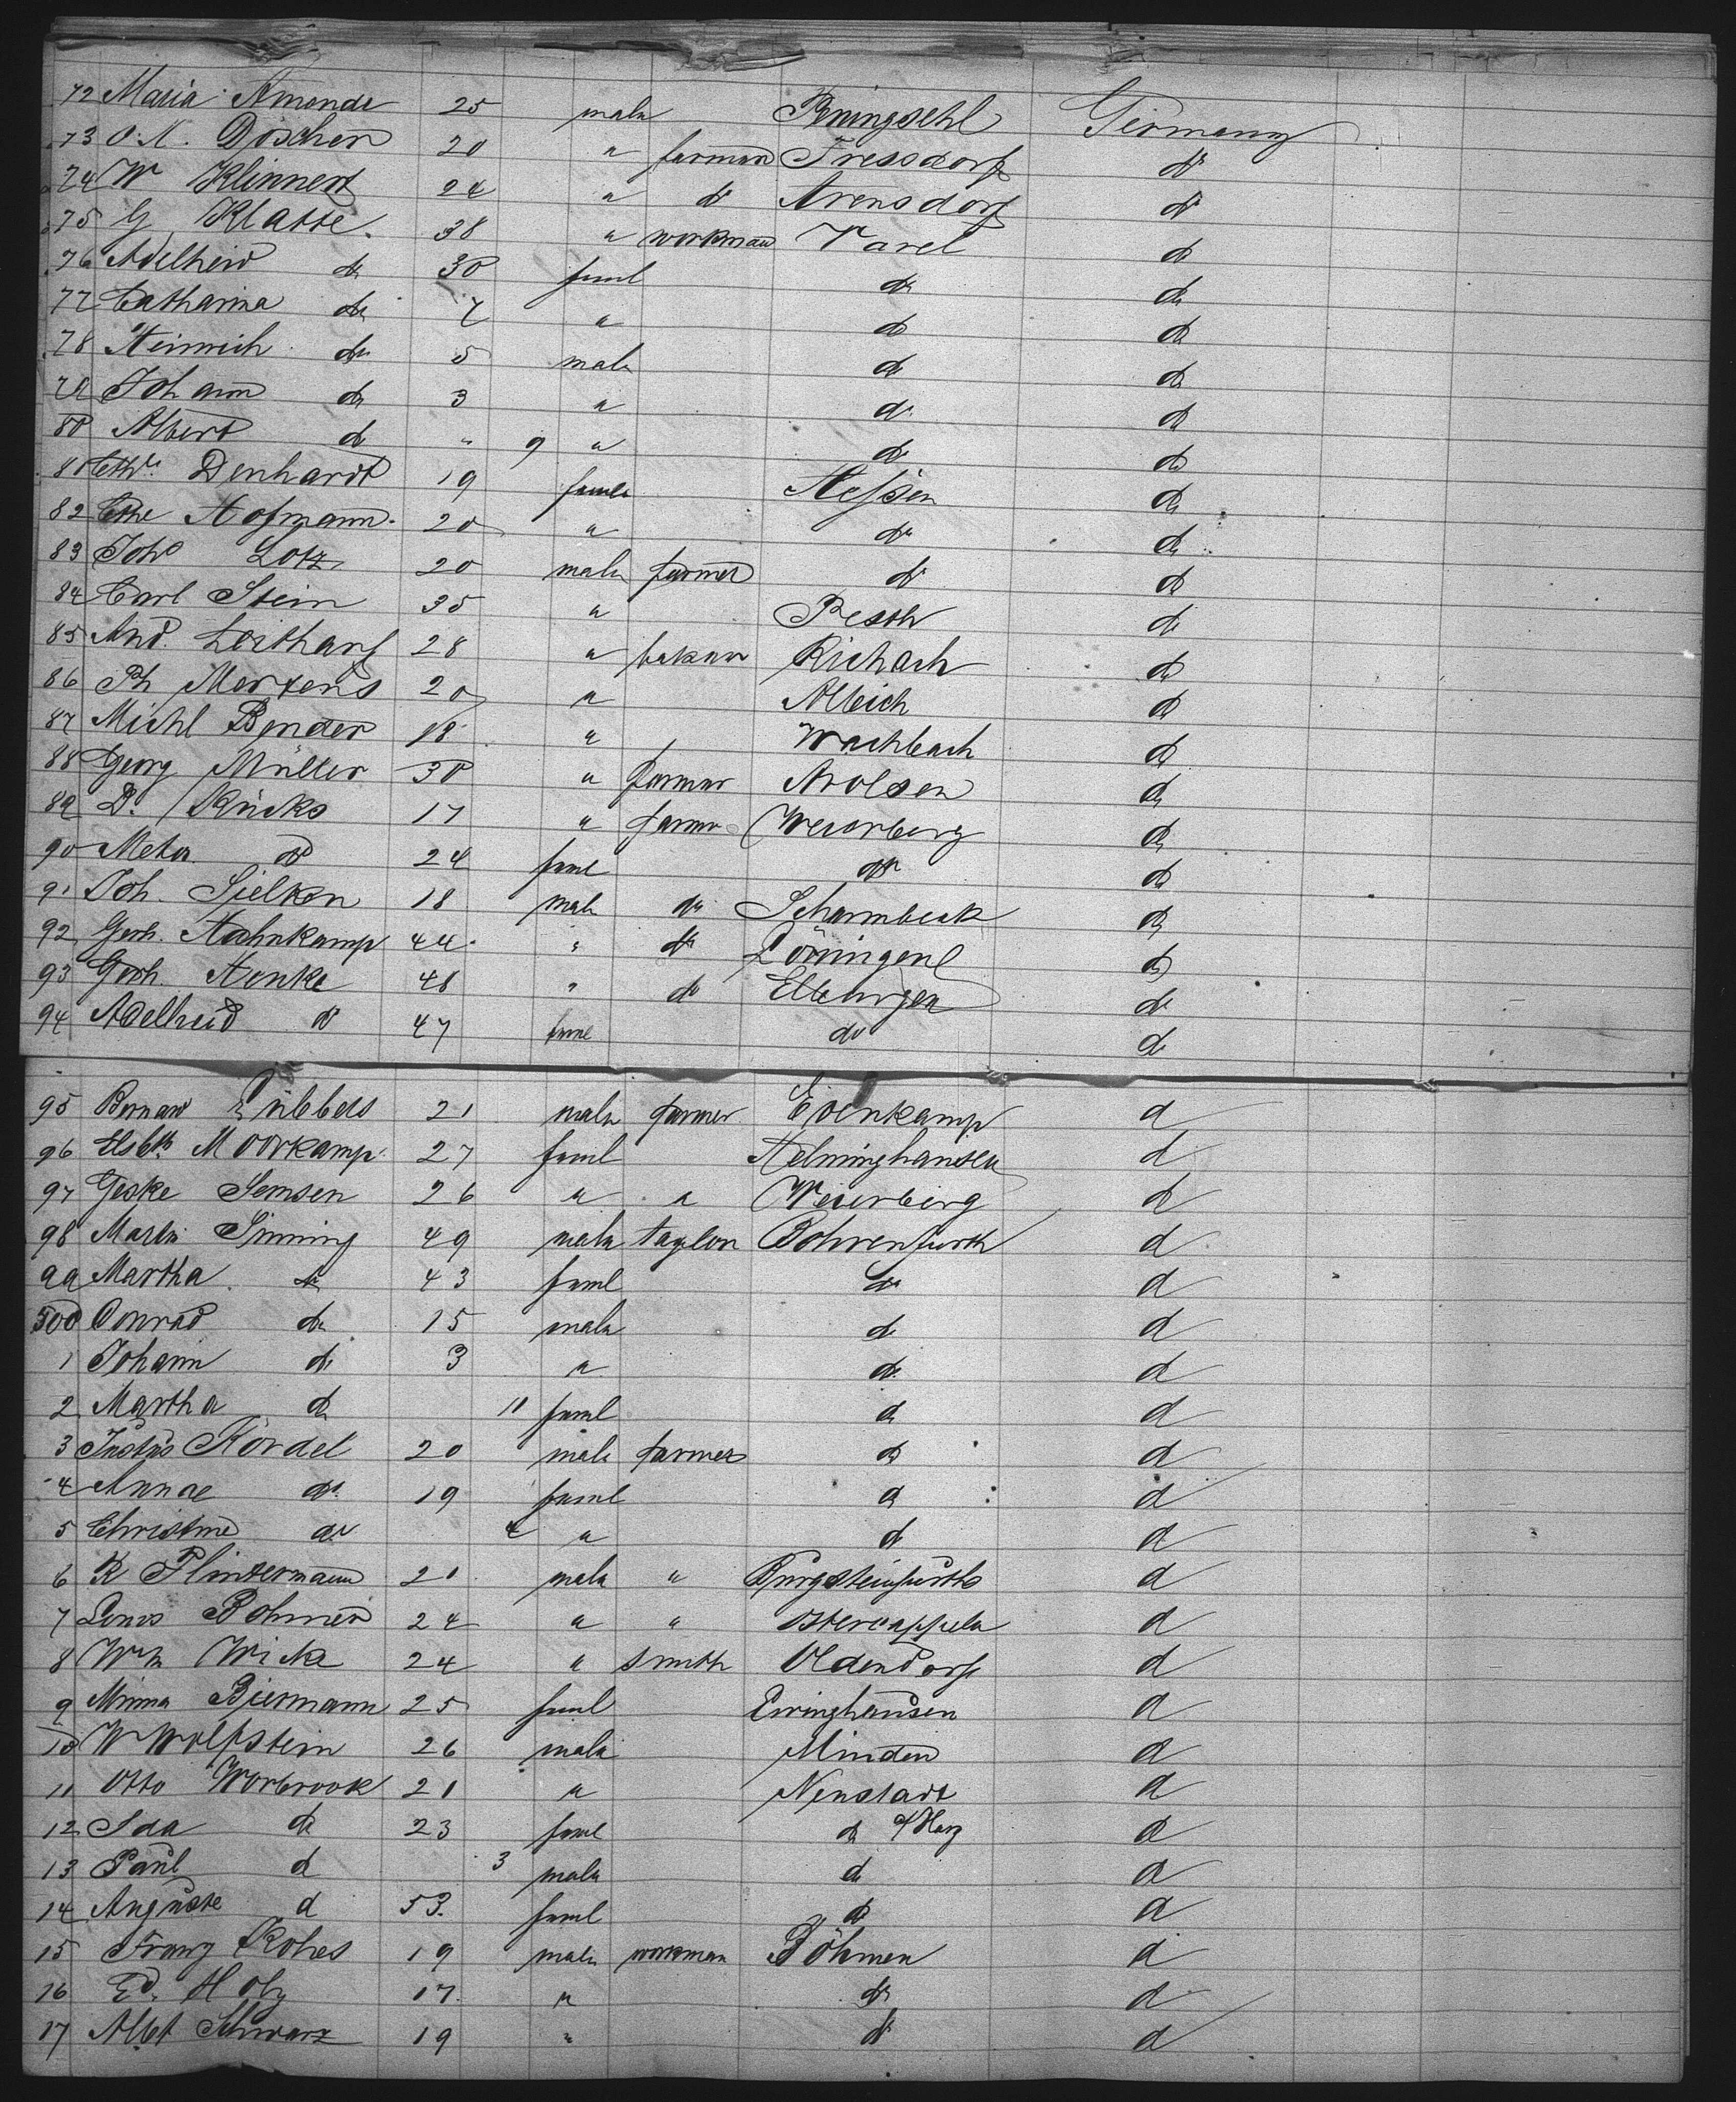 72 Maria Amende 25 male Peningsehl Germany
73 O. N. Döscher 20 " farmer Fressdorf do
74 W Klinnert 24 " do Arensdorf do
75 G Klatte. 38 " workman Varel do
76 Adelheid do 30 feml do do
77 Catharina do 7 " do do
78 Heinrich do 5 male do do
79 Johann do 3 " do do
80 Albert do " 9 " do do
81 Cthe Denhardt 19 femle Hessen do
82 Cthe Hofmann. 20 " do do
83 Joh Lotz 20 male farmer do do
84 Carl Stein 35 " Pesth do
85 And. Leitharf 28 " baker Richach do
86 Ph Mertens 20 " Albich do
87 Michl Bender 18 " Wachbach do
88 Georg Müller 30 " farmer Arolsen do
89 D. Kücks 17 " farmr Weierberg do
90 Meta do 24 feml do do
91 Joh. Sielken 18 male do Scharmbeck do
92 Gerh. Hahnkamp 44 " do Löningen do
93 Gerh. Henke 48 " do Elbergen do
94 Adelheid do 47 feml do do
95 Bernard Lübbers 21 male farmer Evenkamp d
96 Elsbth Moorkamp 27 feml Helminghausen d
97 Geske Semsen 26 " " Weierberg d
98 Martin Sinning 49 male taylor Bohrenfurth d
99 Martha do 43 feml do d
500 Conrad do 15 male do d
1 Johann do 3 " do d
2 Martha do 11 feml d d
3 Justus Kördel 20 male farmer do d
4 Annae do 19 feml d d
5 Christine do 4 " do d
6 K Flintermann 21 male " Burgsteinfurth d
7 Louis Bohmer 24 " " Ostercappeln d
8 Wm Wicke 24 " smith Oldendorf d
9 Minna Biermann 25 feml Ewinghausen d
10 W Wolfstein 26 male Minden d
11 Otto Worbrook 21 " Neustadt d
12 Ida do 23 feml d a/Harz d
13 Paul d 3 male d d
14 Auguste d 53. feml do d
15 Franz Kohes 19 male workman Böhmen d
16 Ed. Holy 17. " do d
17 Albt Schwarz 19 " do d